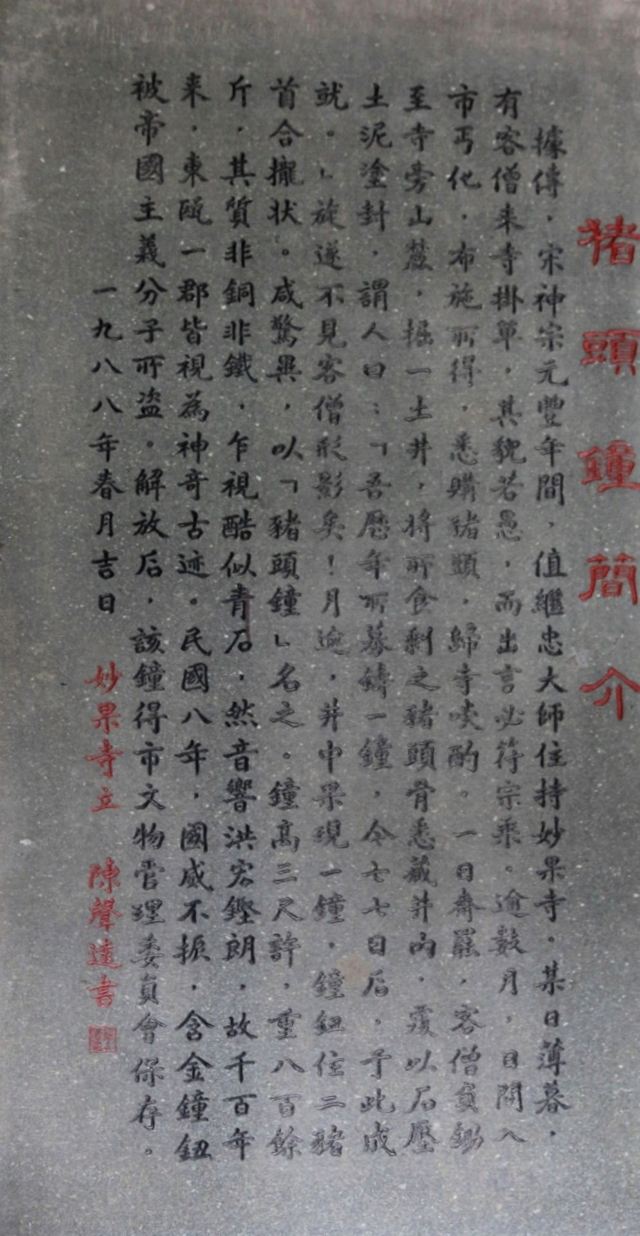 猪頭鐘簡介
據傳，宋神宗元豐年間，值繼忠大師住持妙果寺。某日薄暮，
有客僧来寺掛單，其貌若愚，而出言必符宗乘。逾數月，日間入
市丐化，布施所得，悉購豬頭，歸寺啖酌。一日齋罷，客僧負鋤
至寺旁山麓，掘一土井，將所食剩之豬頭骨悉藏井內，覆以石壓
土泥塗封，謂人曰：「吾歷年所募鑄一鐘，今七七日后，予此成
就。」旋遂不見客僧形影矣！月逾，井中果現一鐘，鐘鈕住二豬
首合攏状。咸驚異，以「豬頭鐘」名之。鐘高三尺許，重八百餘
斤，其質非銅非鐵，乍視酷似青石，然音響洪宏鏗朗，故千百年
来，東甌一郡皆視為神奇古迹。民國八年，國威不振，含金鐘鈕
被帝國主義分子所盗。解放后，該鐘得市文物管理委員會保存。
一九八八年春月吉日 妙果寺立 陳聲遠書